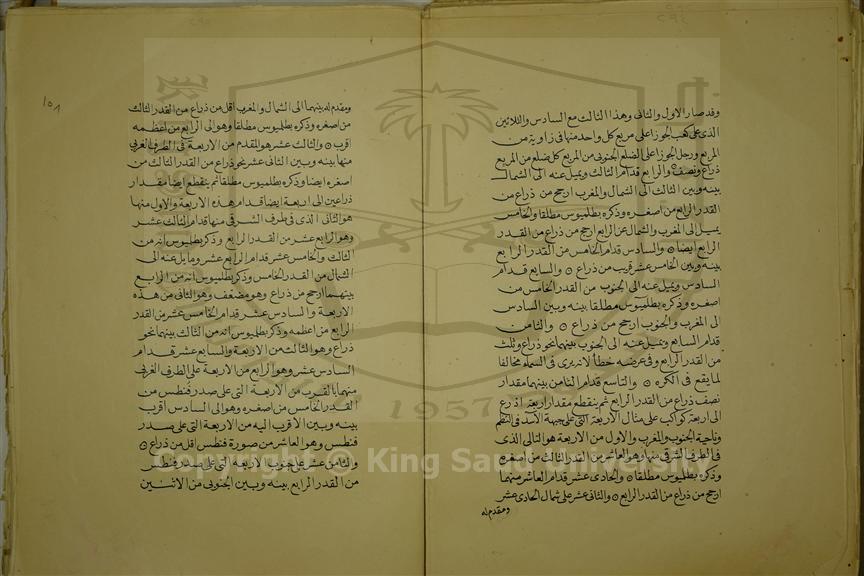 وقد صار الاول والثانى وهذا الثالث مع السادس والثلاثين
الذى على كعب الجوزا على مربع كل واحد منها فى زاوية من
المربع ورجل الجوزا على الضلع الجنوبى من المربع كل ضلع من المربع
ذراع ونصف والرابع قدام الثالث ويميل عنه الى الشمال
بينه وبين الثالث الى الشمال والمغرب ارجح من ذراع من
القدر الرابع من اصغره وذكره بطلميوس مطلقا والخامس
يميل الى المغرب والشمال عن الرابع ارجح من ذراع من القدر
الرابع ايضا والسادس قدام الخامس من القدر الرابع
بينه وبين الخامس عشر قريب من ذراع والسابع قدام
السادس ويميل عنه الى الجنوب من القدر الخامس من
اصغره وذكره بطلميوس مطلقا بينه وبين السادس
الى المغرب والجنوب ارجح من ذراع والثامن
قدام السابع ويميل عنه الى الجنوب بينهما نحو ذراع وثلث
من القدر الرابع وفى عرضه خطأ لانه يرى فى السماء مخالفا
لما يقع فى الكره والتاسع قدام الثامن بينهما مقدار
نصف ذراع من القدر الرابع ثم ينقطع مقدار اربعة اذرع
الى اربعة كواكب على مثال الاربعة التى على جبهة الاسد فى النظم
وناحية الجنوب والمغرب والاول من الاربعة هو التالى الذى
فى الطرف الشرقى منها وهو العاشر من القدر الثالث من اصغره
وذكره بطلميوس مطلقا والحادى عشر قدام العاشر منهما
ارجح من ذراع من القدر الرابع والثانى عشر على شمال الحادى عشر
ومقدم له
١٥٨
ومقدم له بينهما الى الشمال والمغرب اقل من ذراع من القدر الثالث
من اصغره وذكره بطلميوس مطلقا وهو الى الرابع من اعظمه
اقرب والثالث عشر هو المقدم من الاربعة فى الطرف الغربى
منها بينه وبين الثانى عشر نحو ذراع من القدر الثالث من
اصغره ايضا وذكره بطلميوس مطلقا ثم ينقطع ايضا مقدار
ذراعين الى اربعة ايضا قدام هذه الاربعة والاول منها
هو الثانى الذى فى طرف الشرقى منها قدام الثالث عشر
وهو الرابع عشر من القدر الرابع وذكر بطلميوس انه من
الثالث والخامس عشر قدام الرابع عشر ومايل عنه الى
الشمال من القدر الخامس وذكر بطلميوس انه من الرابع
بينهما ارجح من ذراع وهو مضعف وهو الثانى من هذه
الاربعة والسادس عشر قدام الخامس عشر من القدر
الرابع من اعظمه وذكر بطلميوس انه من الثالث بينهما نحو
ذراع وهو الثالث من الاربعة والسابع عشر قدام
السادس عشر وهو الرابع من الاربعة على الطرف الغربى
منها بالقرب من الاربعة التى على صدر قنطس من
القدر الخامس من اصغره وهو الى السادس اقرب
بينه وبين الاقرب اليه من الاربعة التى على صدر
قنطس وهو العاشر من صورة قنطس اقل من ذراع
والثامن عشر على جنوب الاربعة التى على صدر قنطس
من القدر الرابع بينه وبين الجنوبى من الاثنين
Copyright © King Saud University
1957